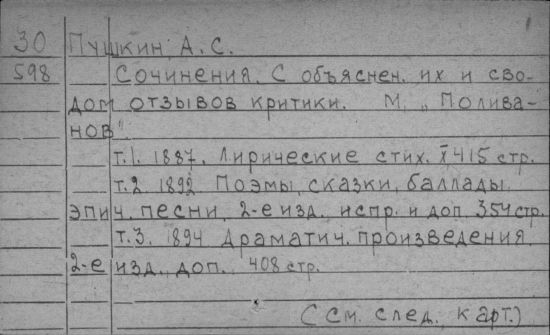 30 Пушкин, А.С.
598 Сочинения. С объяснен. их и сво-
дом отзывов критики. М, „Полива-
нов".
т.1. 1887. Лирические стих. X 415 стр.
т.2. 1892 Поэмы, сказки, баллады
эпич. песни, 2-е изд., испр. и доп. 354 стр.
т.3. 1894 Драматич. произведения,
2-е изд., доп. 408 стр.
(См. след. карт.)